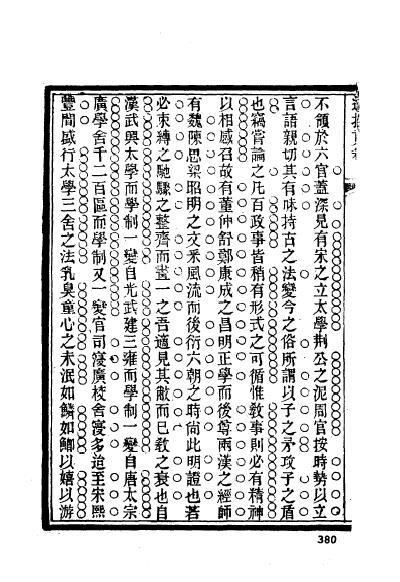 不領於六官蓋深見有宋之立太學荆公之泥周官按時勢以立
言語親切其有味持古之法變今之俗所謂以子之矛攻子之盾
也竊嘗論之凡百政事皆稍有形式之可循惟敎事則必有精神
以相感召故有董仲舒鄭康成之昌明正學而後尊兩漢之經師
有魏陳思梁昭明之文采風流而後衍六朝之時尚此明證也若
必束縛之馳驟之整齊而畫一之吾適見其敝而已敎之衰也自
漢武興太學而學制一變自光武建三雍而學制一變自唐太宗
廣學舍千二百區而學制又一變官司寖廣校舍寖多迨至宋熙
豐間盛行太學三舍之法乳臭童心之未泯如麟如鯽以嬉以游
380